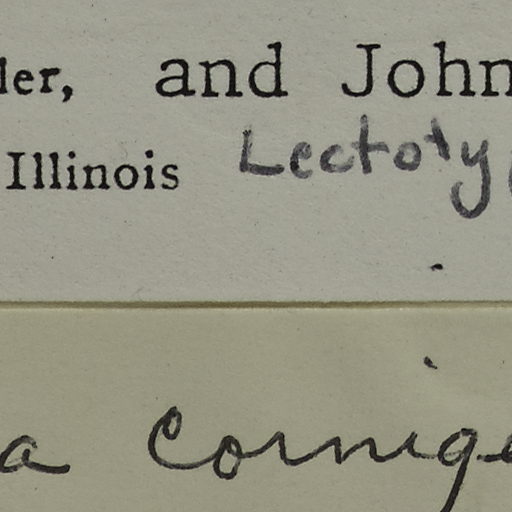 ler, and John
Illinois Lectoty
a cornige